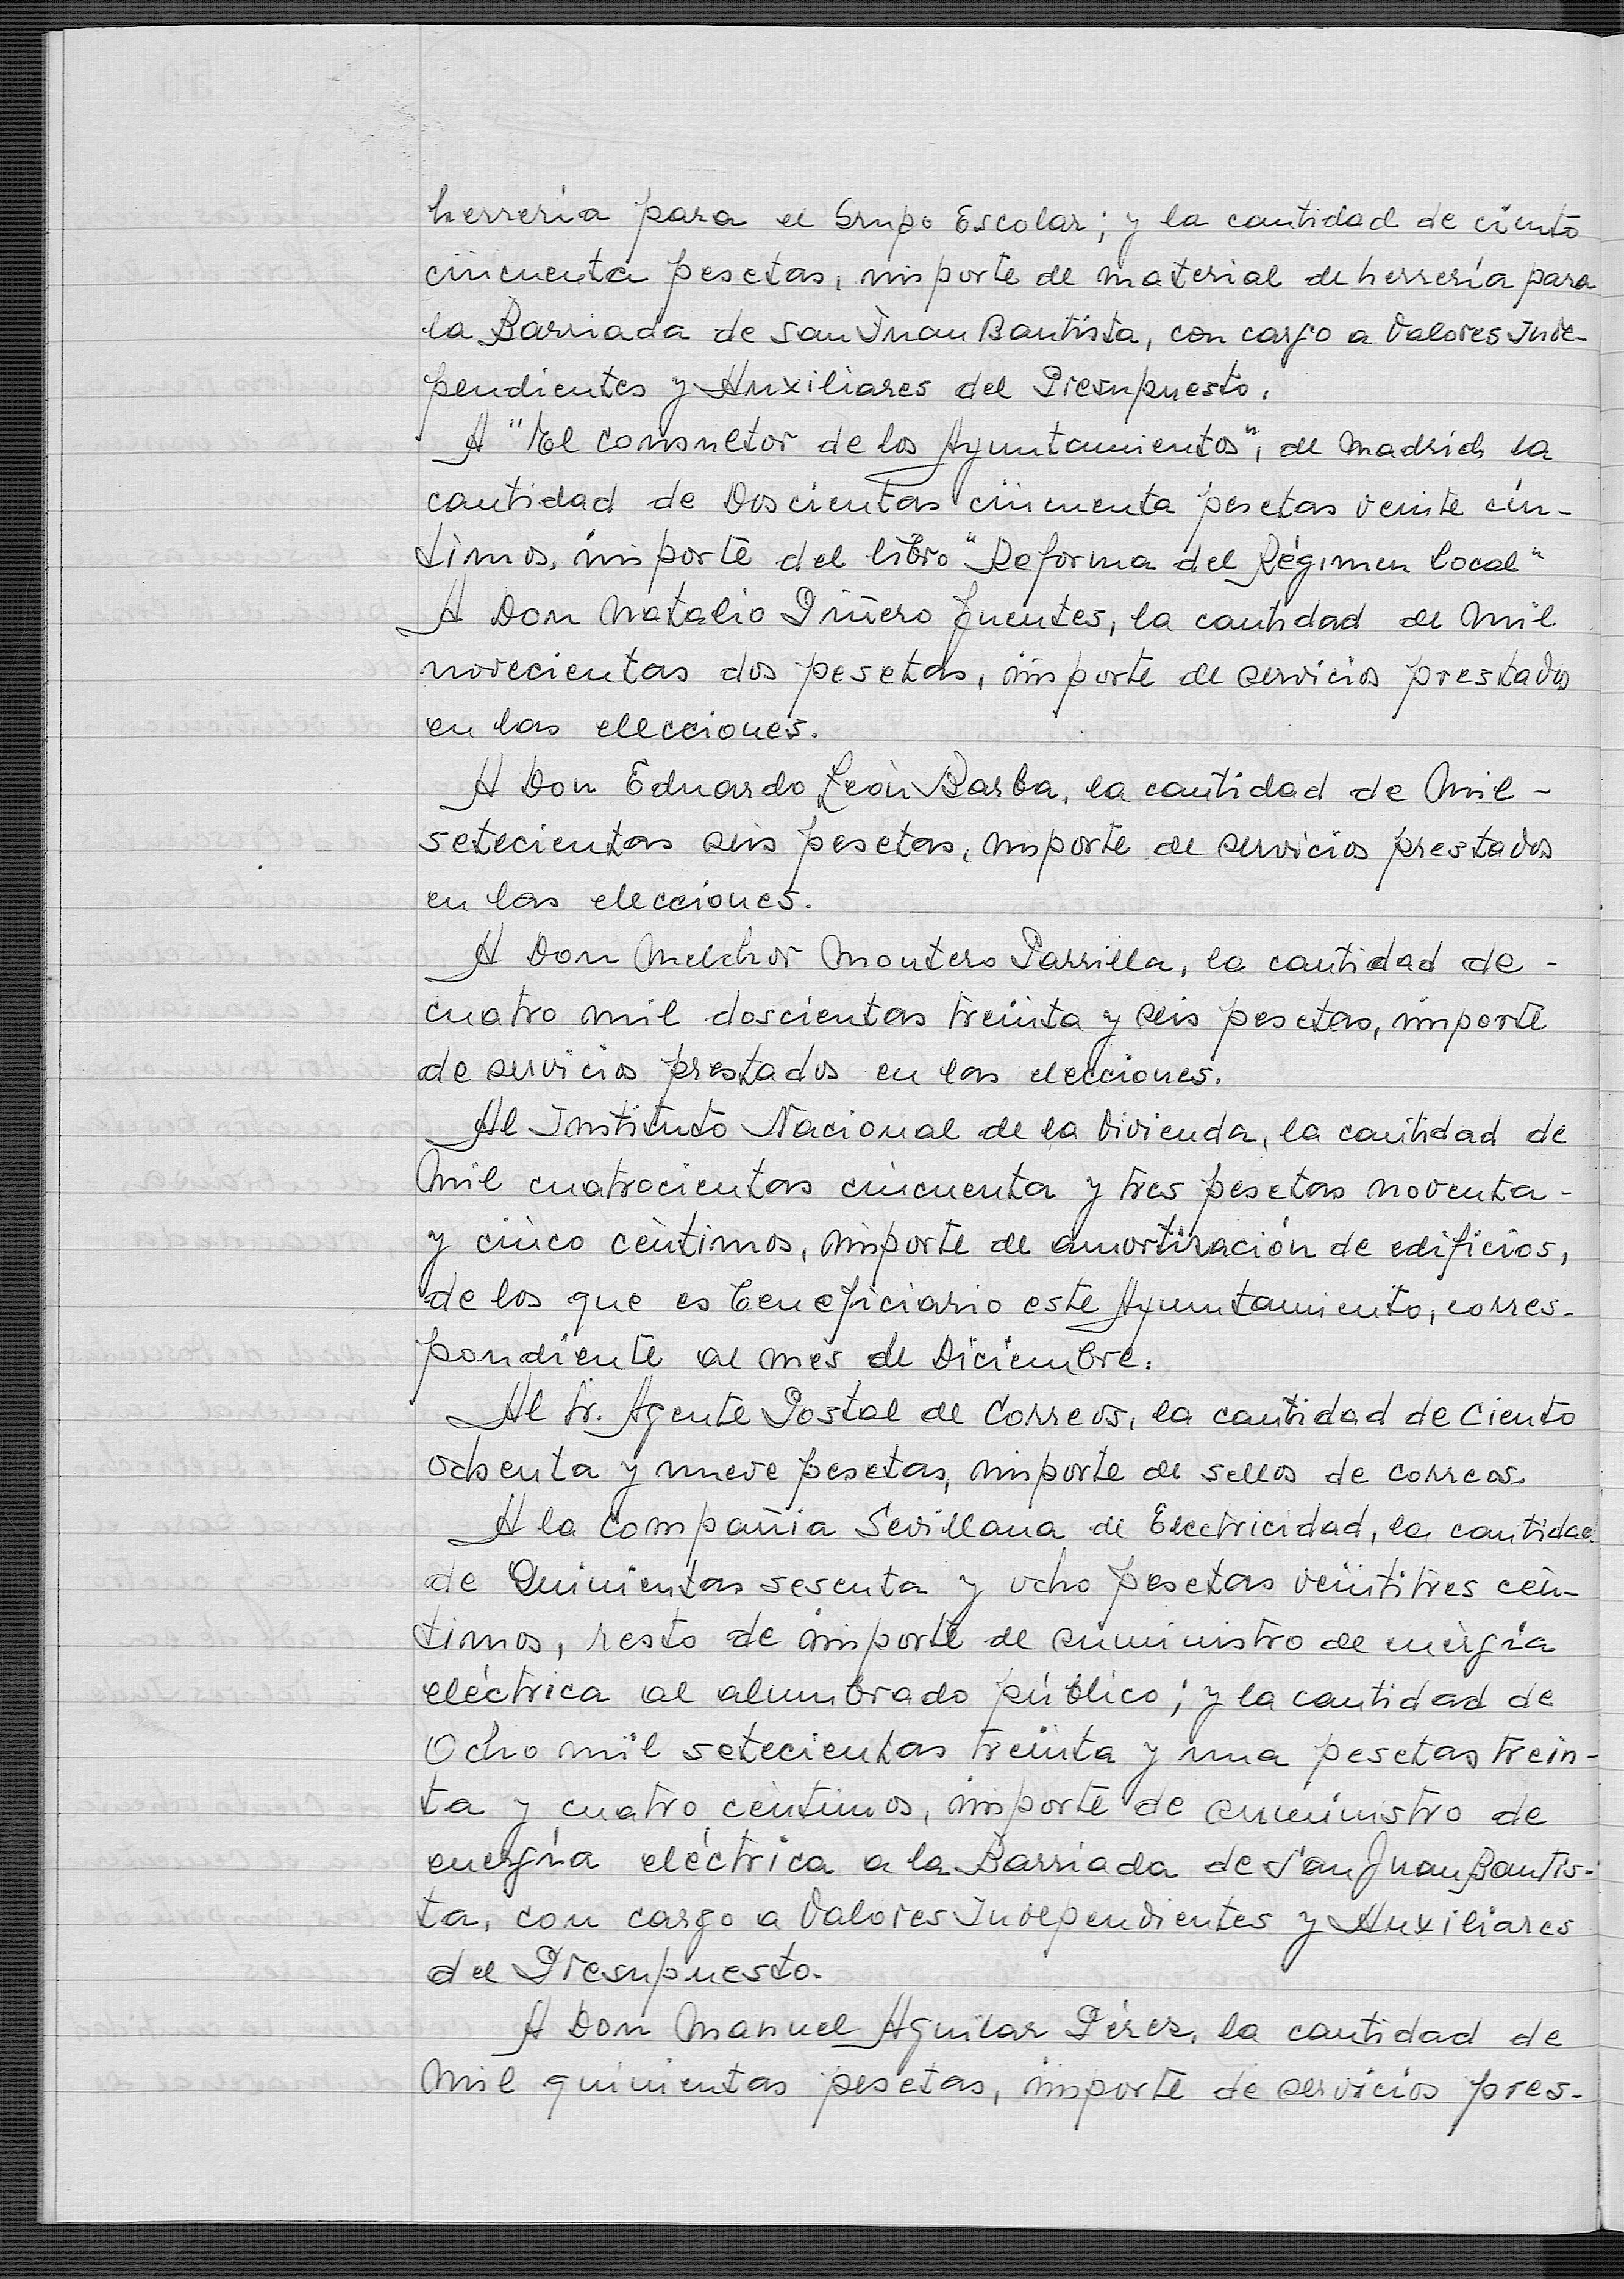 herrería para el Grupo Escolar; y la cantidad de ciento
cincuenta pesetas, importe de material de herrería para
la Barriada de San Juan Bautista, con cargo a Valores Inde-
pendientes y Auxiliares del Presupuesto.
A "El Consultor de los Ayuntamientos", de Madrid, la
cantidad de Doscientas cincuenta pesetas veinte cén-
timos, importe del libro "Reforma del Régimen Local"
A Don Natalio Piñero Fuentes, la cantidad de Mil
novecientas dos pesetas, importe de servicios prestados
en las elecciones.
A Don Eduardo León Barba, la cantidad de Mil -
setecientas seis pesetas, importe de servicios prestados
en las elecciones.
A Don Melchor Montero Parrilla, la cantidad de -
cuatro mil doscientas treinta y seis pesetas, importe
de servicios prestados en las elecciones.
Al Instituto Nacional de la Vivienda, la cantidad de
Mil cuatrocientas cincuenta y tres pesetas noventa -
y cinco céntimos, importe de amortización de edificios,
de los que es beneficiario este Ayuntamiento, corres-
pondiente al mes de Diciembre.
Al Sr. Agente Postal de Correos, la cantidad de Ciento
ochenta y nueve pesetas, importe de sellos de correos.
A la Compañia Sevillana de Electricidad, la cantidad
de Quinientas sesenta y ocho pesetas veintitres cén-
timos, resto de importe de suministro de energía
eléctrica al alumbrado público; y la cantidad de
Ocho mil setecientas treinta y una pesetas trein-
ta y cuatro céntimos, importe de suministro de
energía eléctrica a la Barriada de San Juan Bautis-
ta, con cargo a Valores Independientes y Auxiliares
del Presupuesto.
A Don Manuel Aguilar Pérez, la cantidad de
Mil quinientas pesetas, importe de servicios pres-